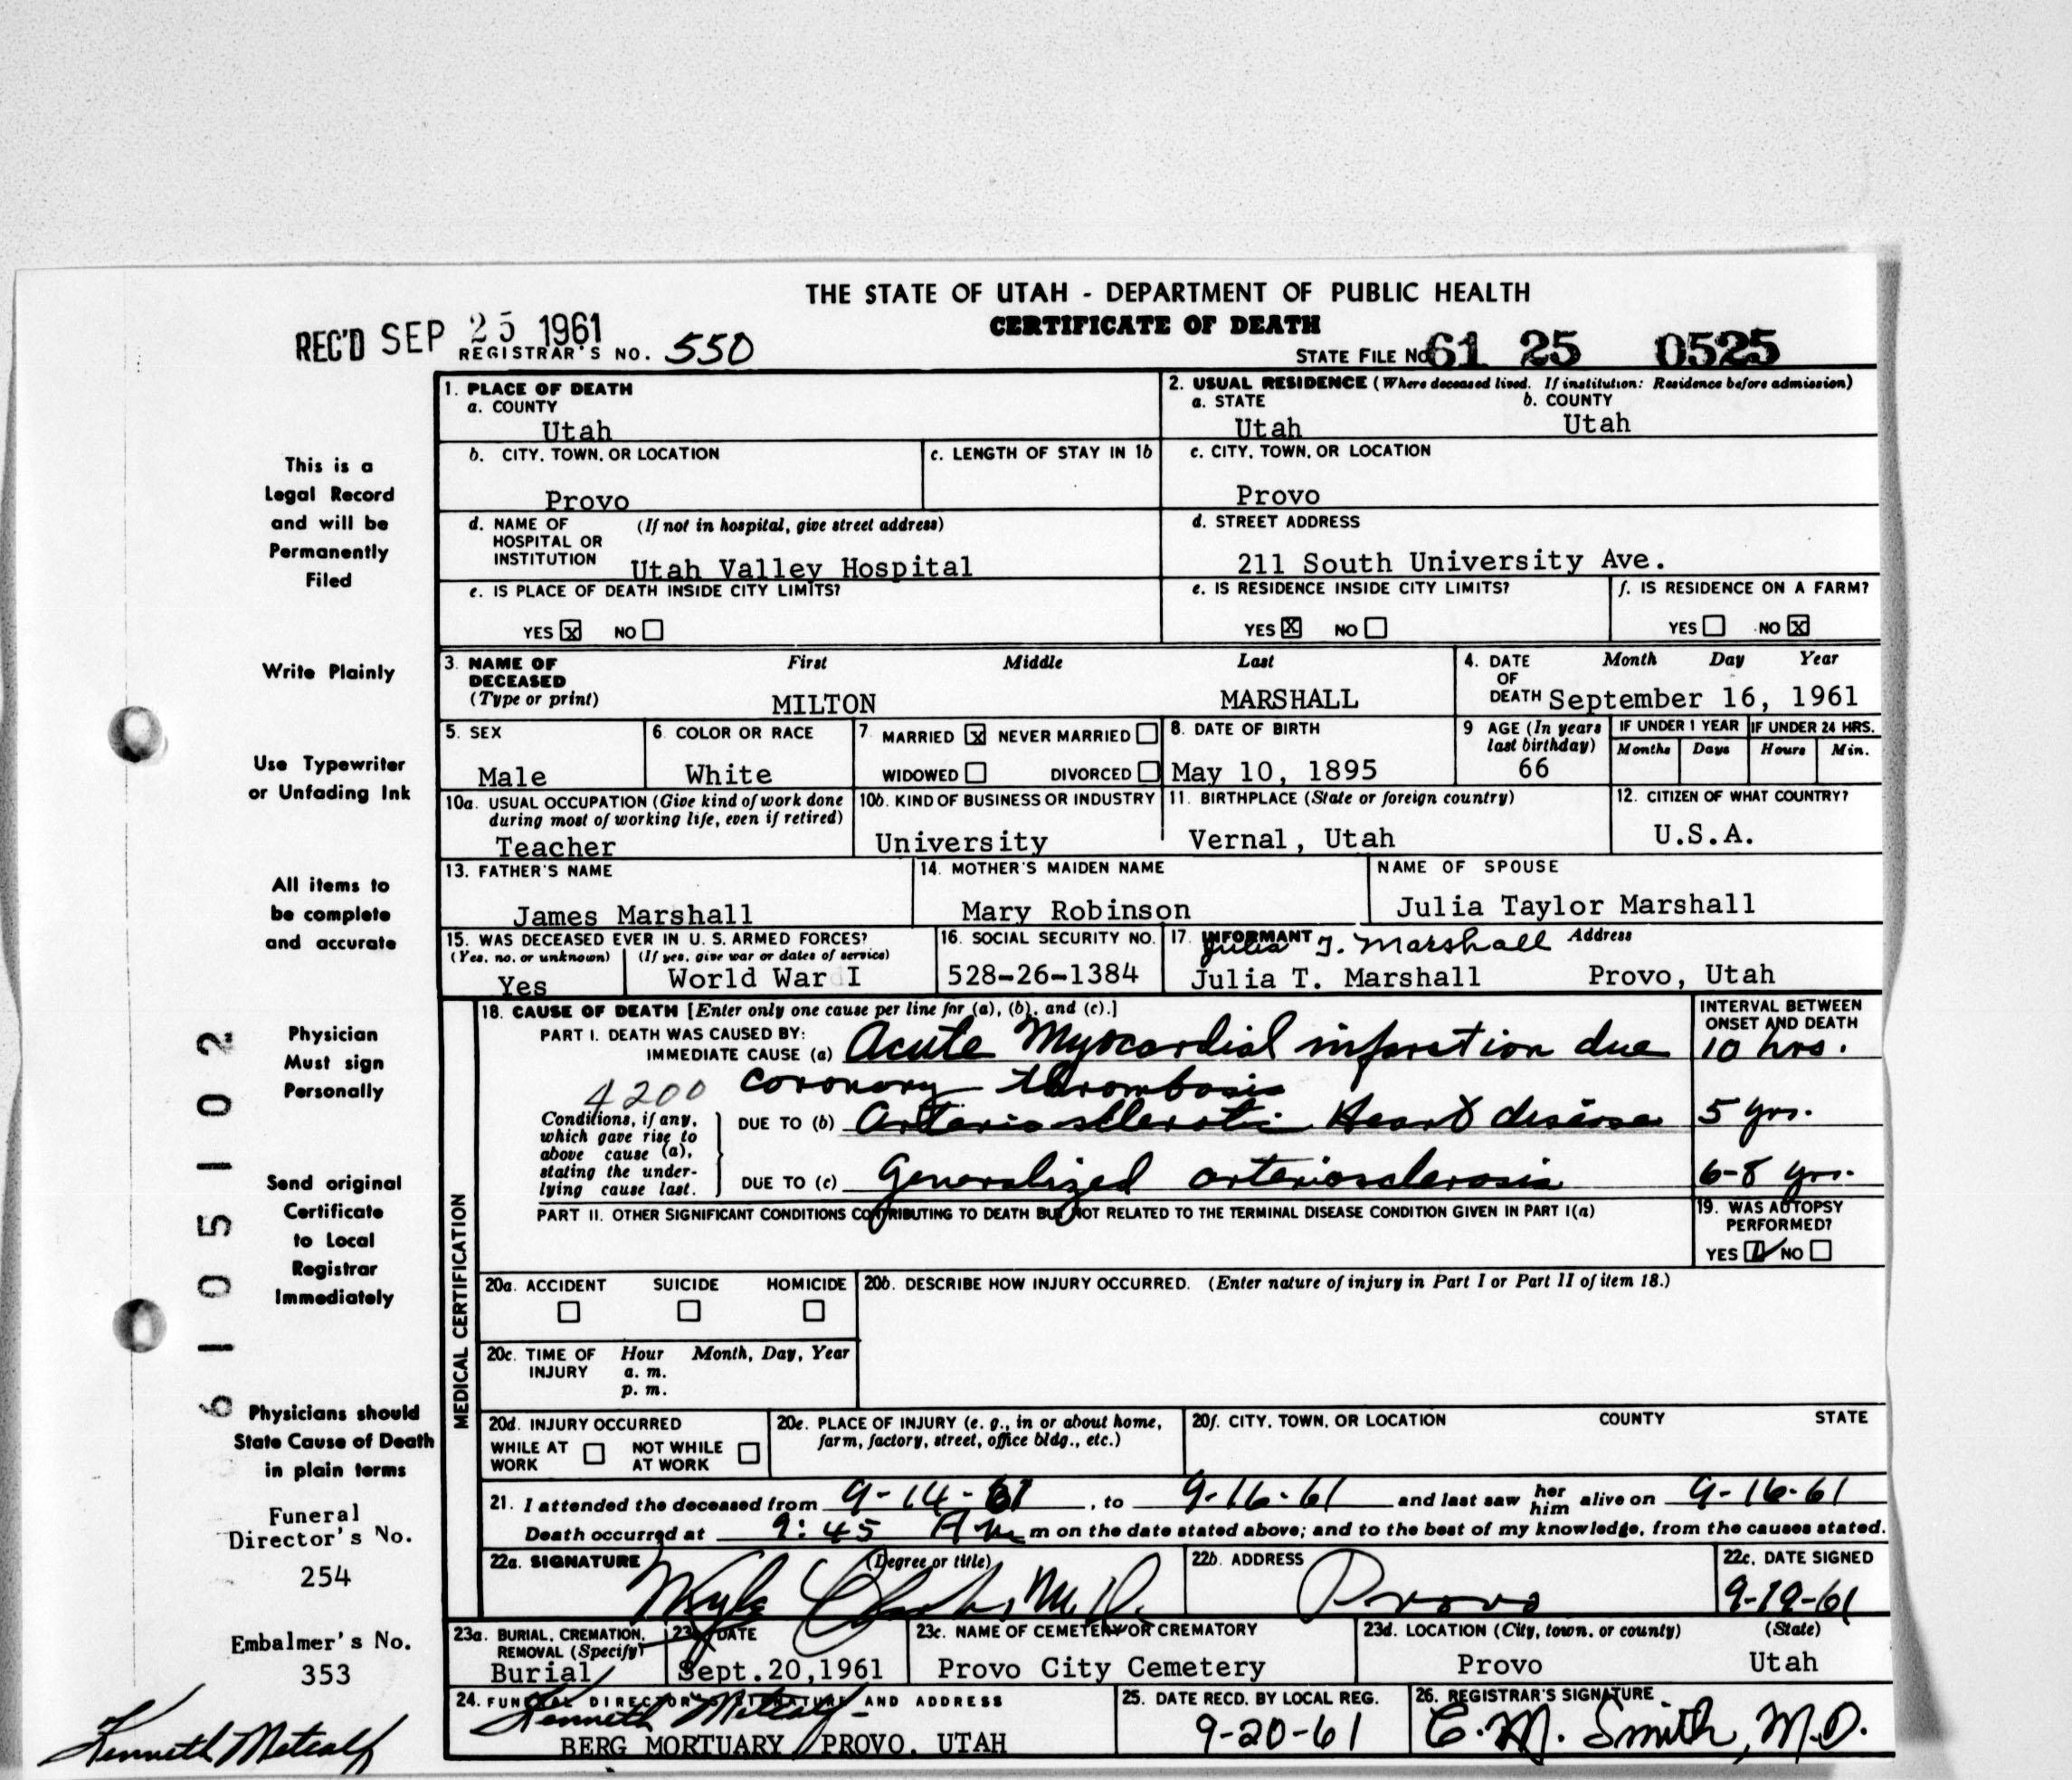 THE STATE OF UTAH - DEPARTMENT OF PUBLIC HEALTH
CERTIFICATE OF DEATH
REC'D SEP 25 1961
REGISTRAR'S NO. 550
STATE FILE NO. 61 25 0525
1. PLACE OF DEATH
a. COUNTY
Utah
2. USUAL RESIDENCE (Where deceased lived. If institution: Residence before admission)
a. STATE b. COUNTY
Utah Utah
b. CITY, TOWN, OR LOCATION
Provo
c. LENGTH OF STAY IN 1b
c. CITY, TOWN, OR LOCATION
Provo
d. NAME OF (If not in hospital, give street address)
HOSPITAL OR
INSTITUTION Utah Valley Hospital
d. STREET ADDRESS
211 South University Ave.
e. IS PLACE OF DEATH INSIDE CITY LIMITS?
YES X NO
e. IS RESIDENCE INSIDE CITY LIMITS?
YES X NO
f. IS RESIDENCE ON A FARM?
YES NO X
3. NAME OF First Middle Last
DECEASED
(Type or print) MILTON MARSHALL
4. DATE Month Day Year
OF
DEATH September 16, 1961
5. SEX
Male
6. COLOR OR RACE
White
7. MARRIED X NEVER MARRIED
WIDOWED DIVORCED
8. DATE OF BIRTH
May 10, 1895
9 AGE (In years
last birthday)
66
IF UNDER 1 YEAR
Months Days
IF UNDER 24 HRS.
Hours Min.
10a. USUAL OCCUPATION (Give kind of work done
during most of working life, even if retired)
Teacher
10b. KIND OF BUSINESS OR INDUSTRY
University
11. BIRTHPLACE (State or foreign country)
Vernal, Utah
12. CITIZEN OF WHAT COUNTRY?
U.S.A.
13. FATHER'S NAME
James Marshall
14. MOTHER'S MAIDEN NAME
Mary Robinson
NAME OF SPOUSE
Julia Taylor Marshall
15. WAS DECEASED EVER IN U. S. ARMED FORCES?
(Yes, no, or unknown) (If yes, give war or dates of service)
Yes World War I
16. SOCIAL SECURITY NO.
528-26-1384
17. INFORMANT Address
Julia T. Marshall
Julia T. Marshall Provo, Utah
18. CAUSE OF DEATH [Enter only one cause per line for (a), (b), and (c).]
INTERVAL BETWEEN
ONSET AND DEATH
PART I. DEATH WAS CAUSED BY:
IMMEDIATE CAUSE (a) Acute Myocardial infarction due 10 hrs.
4200 coronary thrombosis
Conditions, if any,
which gave rise to
above cause (a),
stating the under-
lying cause last.
DUE TO (b) Arteriosclerotic Heart disease 5 yrs.
DUE TO (c) Generalized arteriosclerosis 6-8 yrs.
PART II. OTHER SIGNIFICANT CONDITIONS CONTRIBUTING TO DEATH BUT NOT RELATED TO THE TERMINAL DISEASE CONDITION GIVEN IN PART I(a)
19. WAS AUTOPSY
PERFORMED?
YES NO
20a. ACCIDENT SUICIDE HOMICIDE
20b. DESCRIBE HOW INJURY OCCURRED. (Enter nature of injury in Part I or Part II of item 18.)
20c. TIME OF Hour Month, Day, Year
INJURY a. m.
p. m.
20d. INJURY OCCURRED
WHILE AT NOT WHILE
WORK AT WORK
20e. PLACE OF INJURY (e. g., in or about home,
farm, factory, street, office bldg., etc.)
20f. CITY, TOWN, OR LOCATION COUNTY STATE
21. I attended the deceased from 9-14-61, to 9-16-61 and last saw her him alive on 9-16-61
Death occurred at 9:45 A m m on the date stated above; and to the best of my knowledge, from the causes stated.
22a. SIGNATURE (Degree or title)
M.D.
22b. ADDRESS
Provo
22c. DATE SIGNED
9-19-61
23a. BURIAL, CREMATION,
REMOVAL (Specify)
Burial
23b. DATE
Sept.20,1961
23c. NAME OF CEMETERY OR CREMATORY
Provo City Cemetery
23d. LOCATION (City, town, or county) (State)
Provo Utah
24. FUNERAL DIRECTOR'S SIGNATURE AND ADDRESS
Kenneth Metcalf
BERG MORTUARY PROVO, UTAH
25. DATE RECD. BY LOCAL REG.
9-20-61
26. REGISTRAR'S SIGNATURE
E. M. Smith, M.D.
MEDICAL CERTIFICATION
This is a
Legal Record
and will be
Permanently
Filed
Write Plainly
Use Typewriter
or Unfading Ink
All items to
be complete
and accurate
Physician
Must sign
Personally
Send original
Certificate
to Local
Registrar
Immediately
Physicians should
State Cause of Death
in plain terms
Funeral
Director's No.
254
Embalmer's No.
353
Kenneth Metcalf
6105102